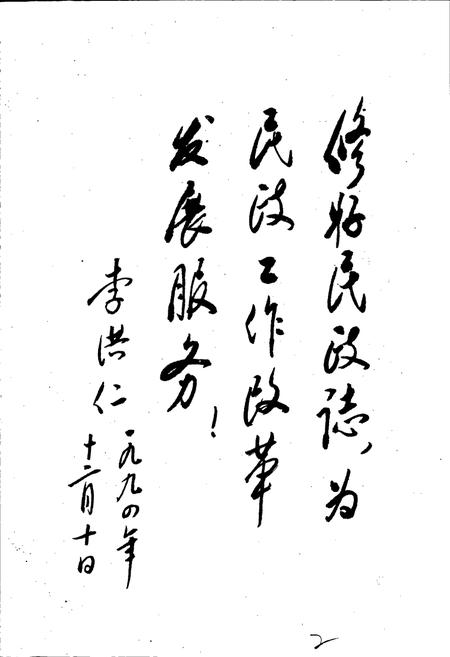 修好民政誌,为
民政工作改革
发展服务!
李洪仁
一九九四年
十二月十日
2